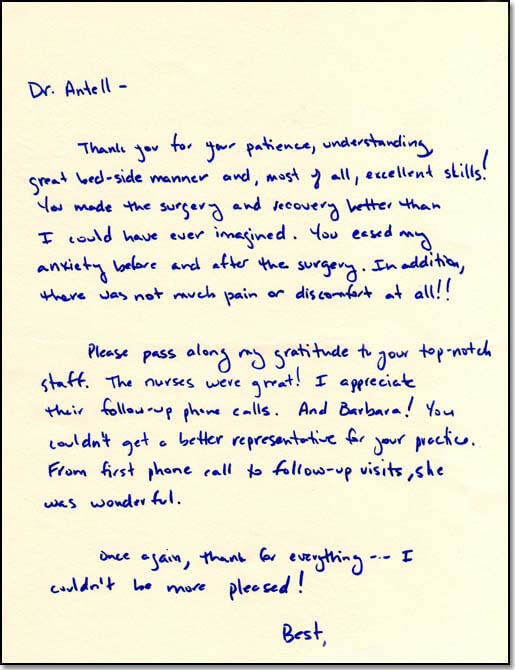 Dr. Antell -
Thank you for your patience, understanding,
great bed-side manner and, most of all, excellent skills!
You made the surgery and recovery better than
I could have ever imagined. You eased my
anxiety before and after the surgery. In addition,
there was not much pain or discomfort at all!!
Please pass along my gratitude to your top-notch
staff. The nurses were great! I appreciate
their follow-up phone calls. And Barbara! You
couldn't get a better representative for your practice.
From first phone call to follow-up visits, she
was wonderful.
Once again, thank for everything --- I
couldn't be more pleased!
Best,